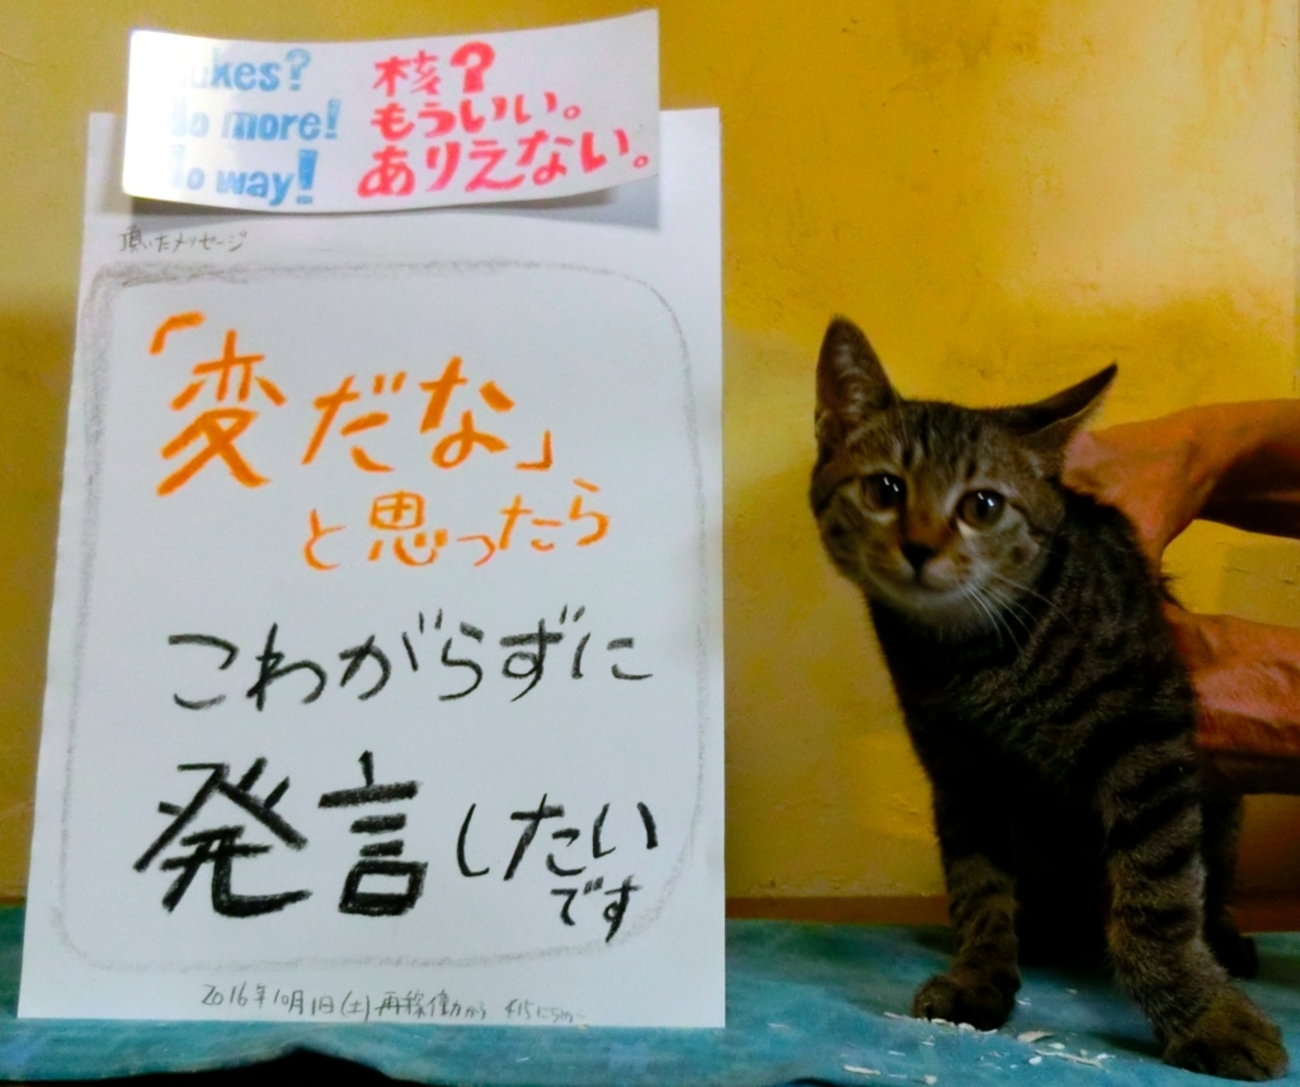 ukes?
o more!
o way!
核?
もういい。
ありえない。
頂いたメッセージ
「変だな」
と思ったら
こわがらずに
発言したい
です
2016年10月1日(土)再稼働から